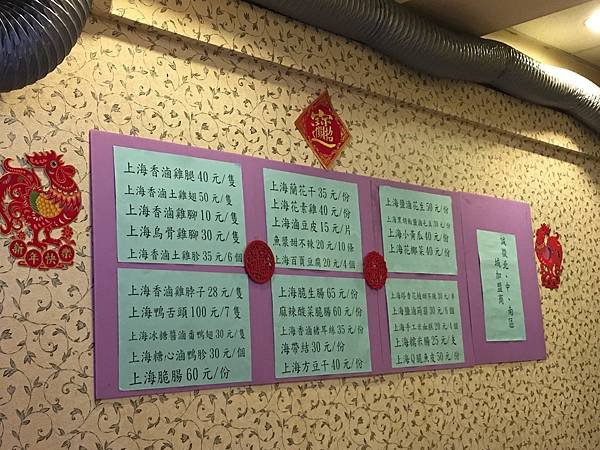 上海香滷雞腿40元/隻
上海香滷土雞翅50元/隻
上海香滷雞腳10元/隻
上海烏骨雞腳30元/隻
上海香滷土雞胗35元/6個
上海香滷雞脖子28元/隻
上海鴨舌頭100元/7隻
上海冰糖醬滷番鴨翅30元/隻
上海糖心滷鴨胗30元/個
上海脆腸60元/份
上海蘭花干35元/份
上海花素雞40元/份
上海滷豆皮15元/片
魚漿甜不辣20元/10條
上海百頁豆腐20元/4個
上海脆生腸65元/份
麻辣酸菜脆腸60元/份
上海香滷豬耳絲35元/份
海帶結30元/份
上海方豆干40元/份
上海鹽滷花生50元/份
上海小黃瓜40元/份
上海花椰菜40元/份
上海手工米血糕20元/4個
上海糯米腸25元/支
上海Q魷魚安50元/份
誠徵北、中、南區
域加盟商
新年快樂